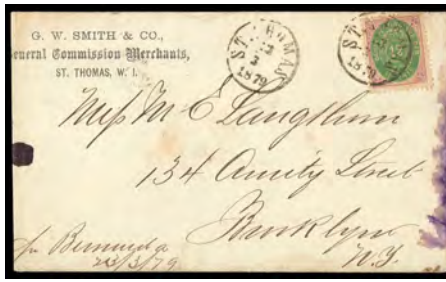 G. W. SMITH & CO.,
General Commission Merchants,
ST. THOMAS, W. I.
ST. THOMAS
1879
ST.
1879
Miss M E Langthorn
134 Amity Street
Brooklyn
N.Y.
pr Bermuda
23/3/79